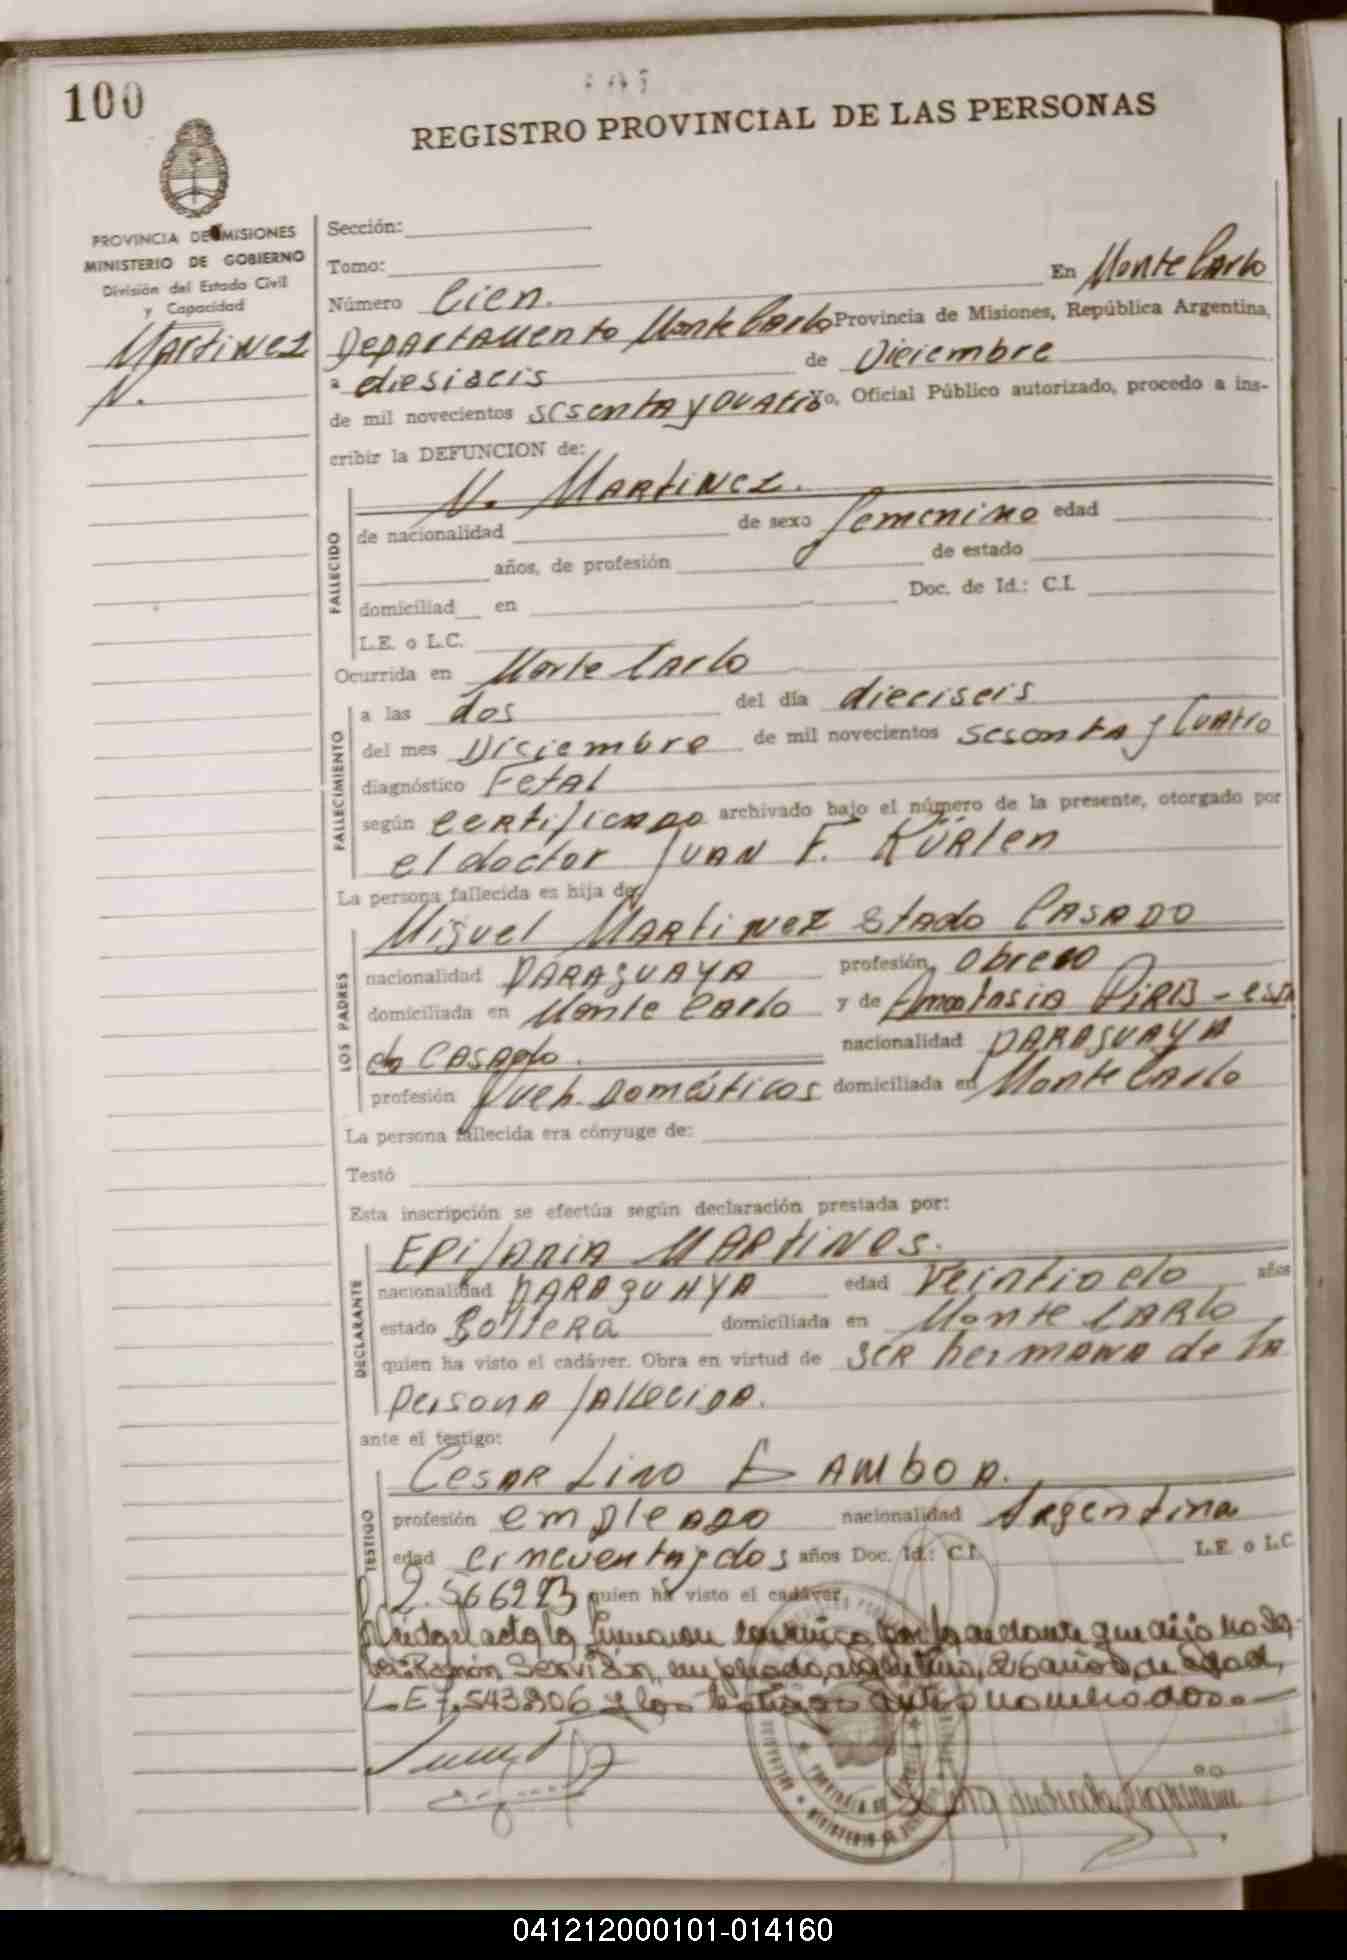 100
REGISTRO PROVINCIAL DE LAS PERSONAS
PROVINCIA DE MISIONES
MINISTERIO DE GOBIERNO
División del Estado Civil
y Capacidad
Martinez
N.
Sección:
Tomo:
En Monte Carlo
Número Cien.
Departamento Monte Carlo Provincia de Misiones, República Argentina,
a diesiseis de Diciembre
de mil novecientos sesenta y cuatro Yo, Oficial Público autorizado, procedo a ins-
cribir la DEFUNCION de:
N. Martinez.
FALLECIDO
de nacionalidad de sexo femenino edad
años, de profesión de estado
domiciliad en Doc. de Id.: C.I.
L.E. o L.C.
Ocurrida en Monte Carlo
FALLECIMIENTO
a las dos del día dieciseis
del mes Diciembre de mil novecientos sesenta y cuatro
diagnóstico Fetal
según certificado archivado bajo el número de la presente, otorgado por
el doctor Juan F. Kürten
La persona fallecida es hija de:
LOS PADRES
Miguel Martinez Stado Casado
nacionalidad paraguaya profesión obrero
domiciliada en Monte Carlo y de Anastasia Piris - esta
do Casado. nacionalidad paraguaya
profesión queh. domésticos domiciliada en Monte Carlo
La persona fallecida era cónyuge de:
Testó
Esta inscripción se efectúa según declaración prestada por:
DECLARANTE
Epifania Martines.
nacionalidad paraguaya edad veintiocho años
estado Soltera domiciliada en Monte Carlo
quien ha visto el cadáver. Obra en virtud de ser hermana de la
persona fallecida.
ante el testigo:
TESTIGO
Cesar Lino Gamboa.
profesión empleado nacionalidad Argentina
edad cincuenta y dos años Doc. Id.: C.I. L.E. o L.C.
2.566223 quien ha visto el cadáver
Leida el acta la firmaron conmigo por la declarante que dijo no sa-
ber Ramón Servián, empleado, argentino, 26 años de edad,
L E 7.543.906 y los testigos antes nombrados.
041212000101-014160